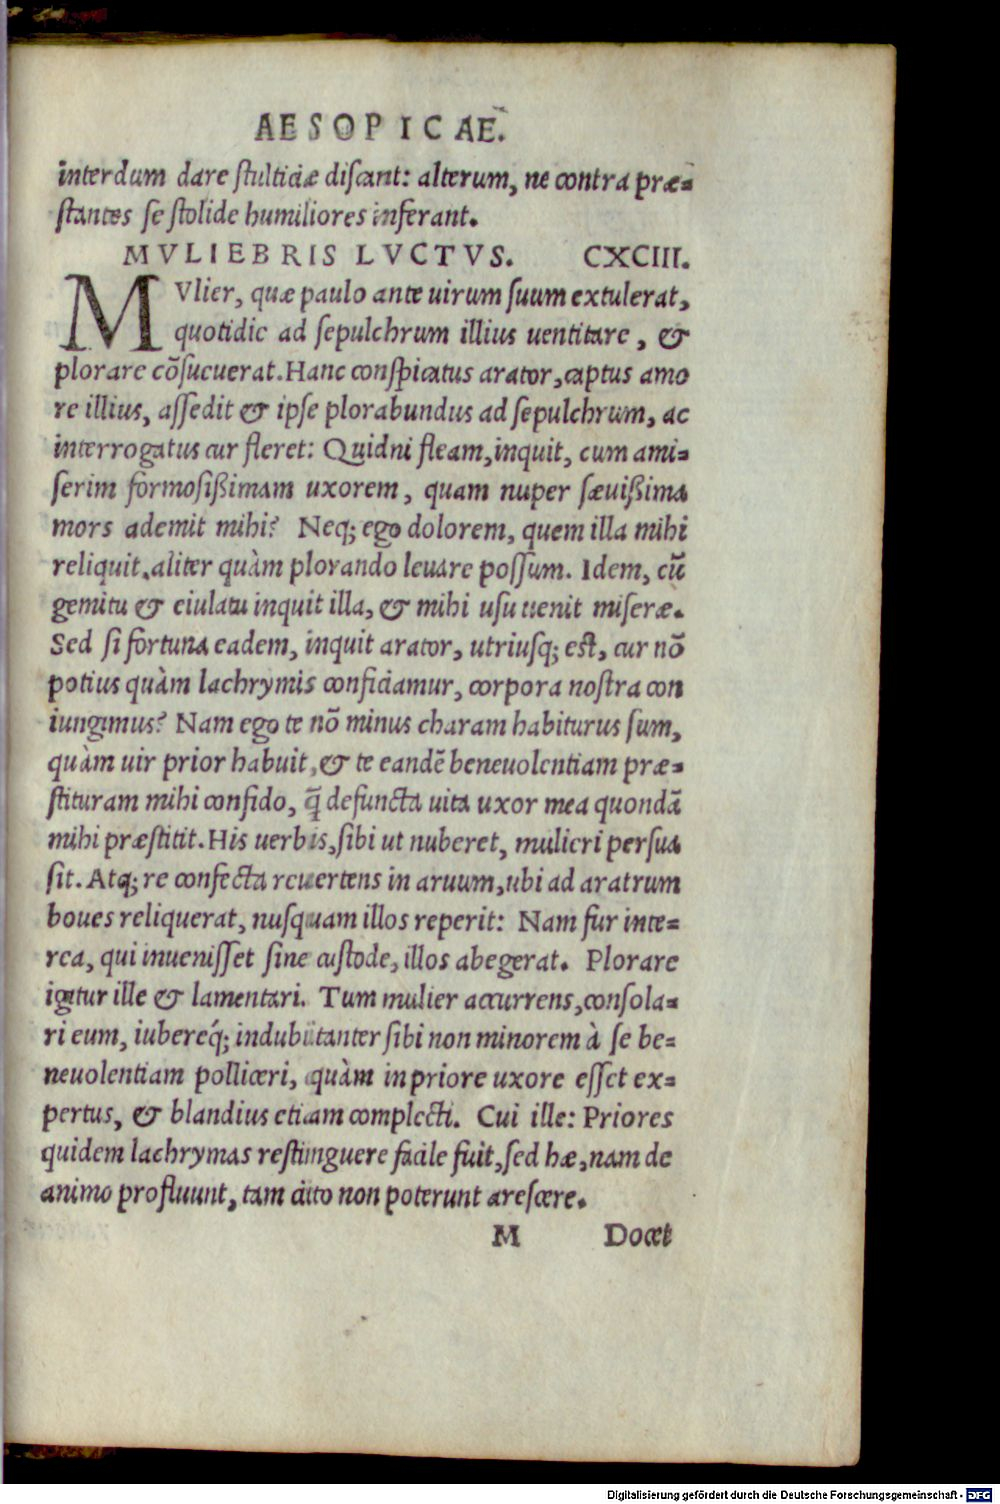 AESOPICAE.
interdum dare stulticiæ discant: alterum, ne contra præ-
stantes se stolide humiliores inferant.
MVLIEBRIS LVCTVS. CXCIII.
MVlier, quæ paulo ante uirum suum extulerat,
quotidie ad sepulchrum illius uentitare, &
plorare cōsueuerat. Hanc conspicatus arator, captus amo
re illius, assedit & ipse plorabundus ad sepulchrum, ac
interrogatus cur fleret: Quidni fleam, inquit, cum ami-
serim formosißimam uxorem, quam nuper sæuißima
mors ademit mihi? Neq; ego dolorem, quem illa mihi
reliquit, aliter quàm plorando leuare possum. Idem, cū
gemitu & eiulatu inquit illa, & mihi usu uenit miseræ.
Sed si fortuna eadem, inquit arator, utriusq; est, cur nō
potius quàm lachrymis conficiamur, corpora nostra con
iungimus? Nam ego te nō minus charam habiturus sum,
quàm uir prior habuit, & te eandē beneuolentiam præ-
stituram mihi confido, q̄ defuncta uita uxor mea quondā
mihi præstitit. His uerbis, sibi ut nuberet, mulieri persua
sit. Atq; re confecta reuertens in aruum, ubi ad aratrum
boues reliquerat, nusquam illos reperit: Nam fur inte-
rea, qui inuenisset sine custode, illos abegerat. Plorare
igitur ille & lamentari. Tum mulier accurrens, consola-
ri eum, iubereq́; indubitanter sibi non minorem à se be-
neuolentiam polliceri, quàm in priore uxore esset ex-
pertus, & blandius etiam complecti. Cui ille: Priores
quidem lachrymas restinguere facile fuit, sed hæ, nam de
animo profluunt, tam cito non poterunt arescere.
M Docet
Digitalisierung gefördert durch die Deutsche Forschungsgemeinschaft - DFG